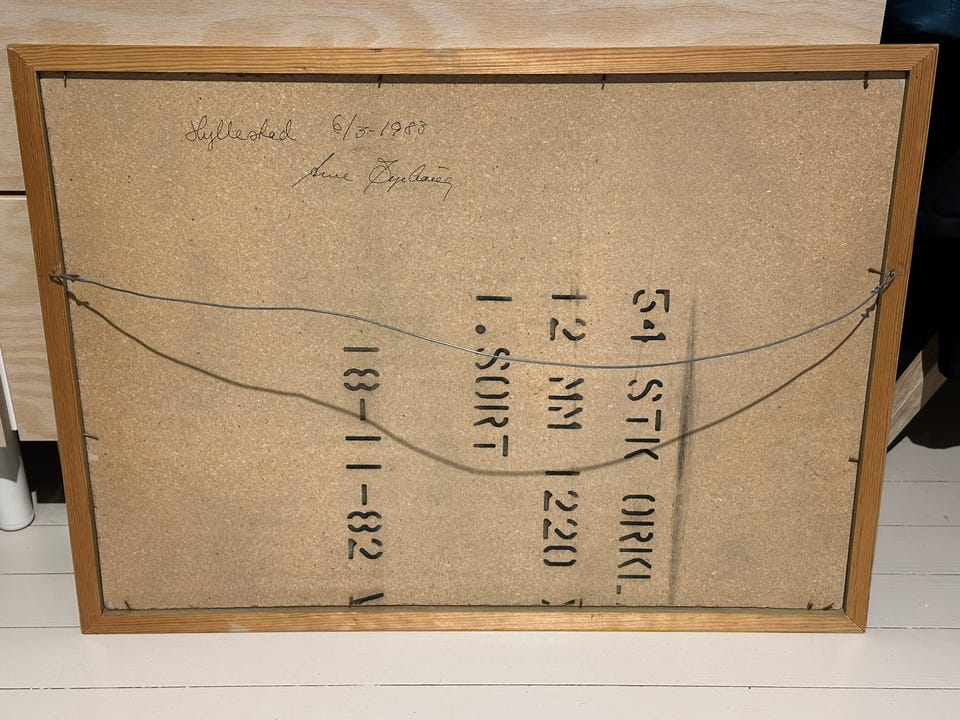 Hyllested 6/3-1983
Arne
54 STK ORKL
12 MM 1220
1. SORT
18-11-82